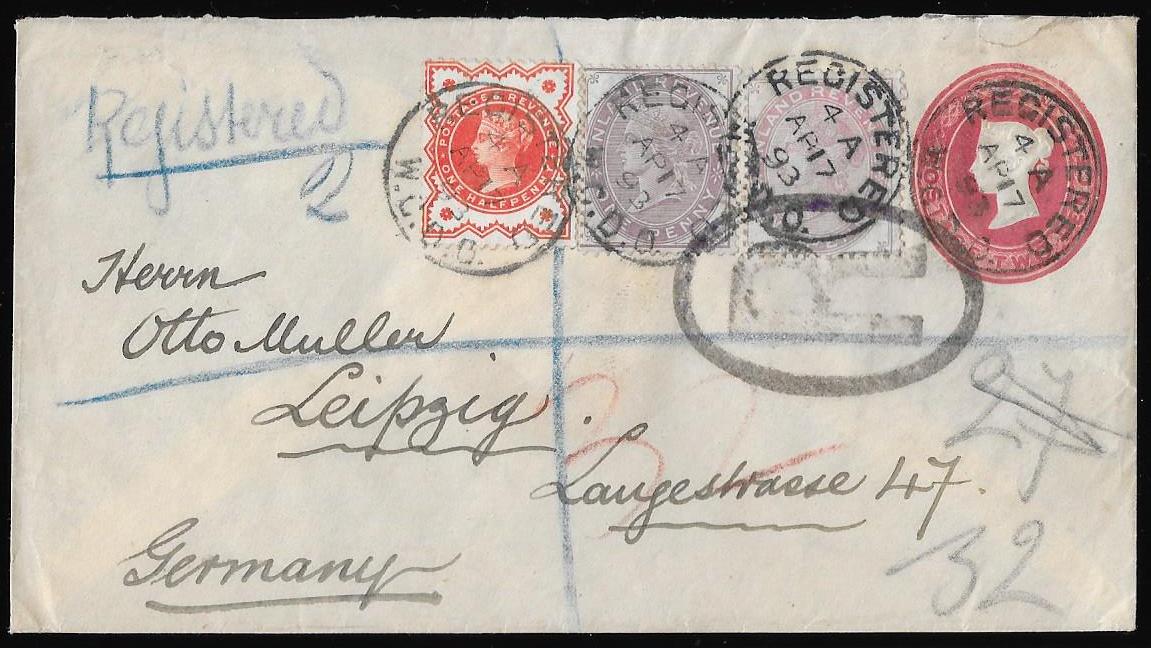 Registered
2
POSTAGE & REVENUE
ONE HALFPENNY
INLAND REVENUE
ONE PENNY
INLAND REVENUE
REGISTERED
4 A
AP 17
93
W.C.D.O.
REGISTERED
4 A
AP 17
93
REGISTERED
4 A
AP 17
93
R
Herrn
Otto Muller
Leipzig.
Langestrasse 47.
Germany
32
27
5
32